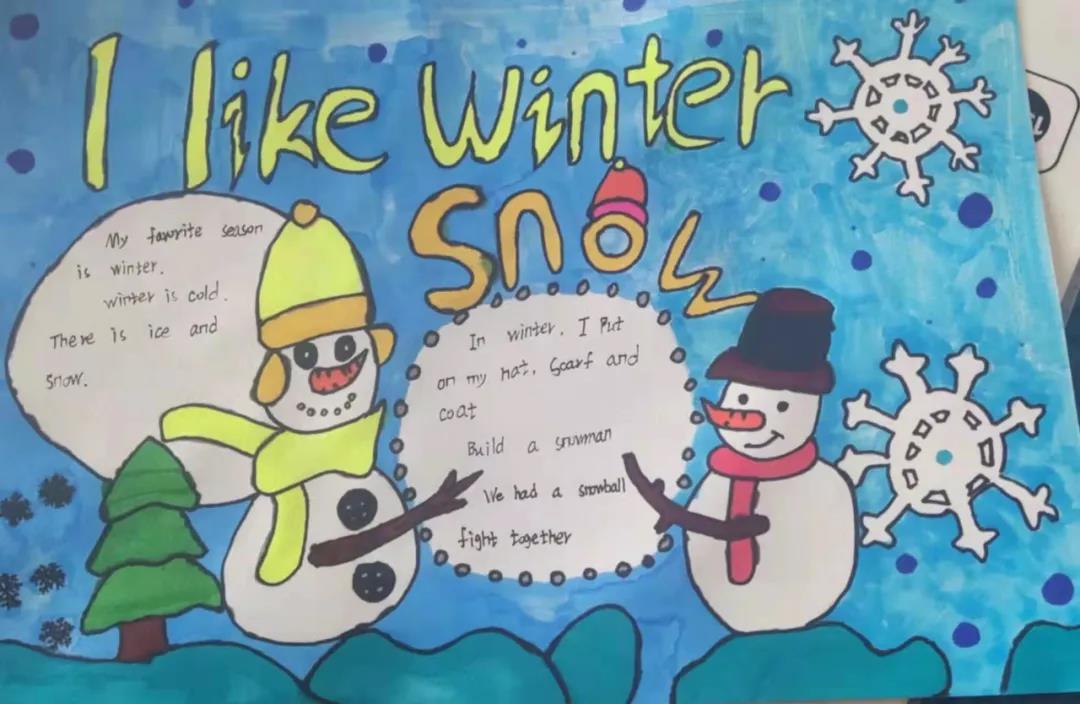 I like Winter
Snow
My favorite season
is winter.
winter is cold.
There is ice and
snow.
In winter. I Put
on my hat. Scarf and
coat
Build a snowman
We had a snowball
fight together